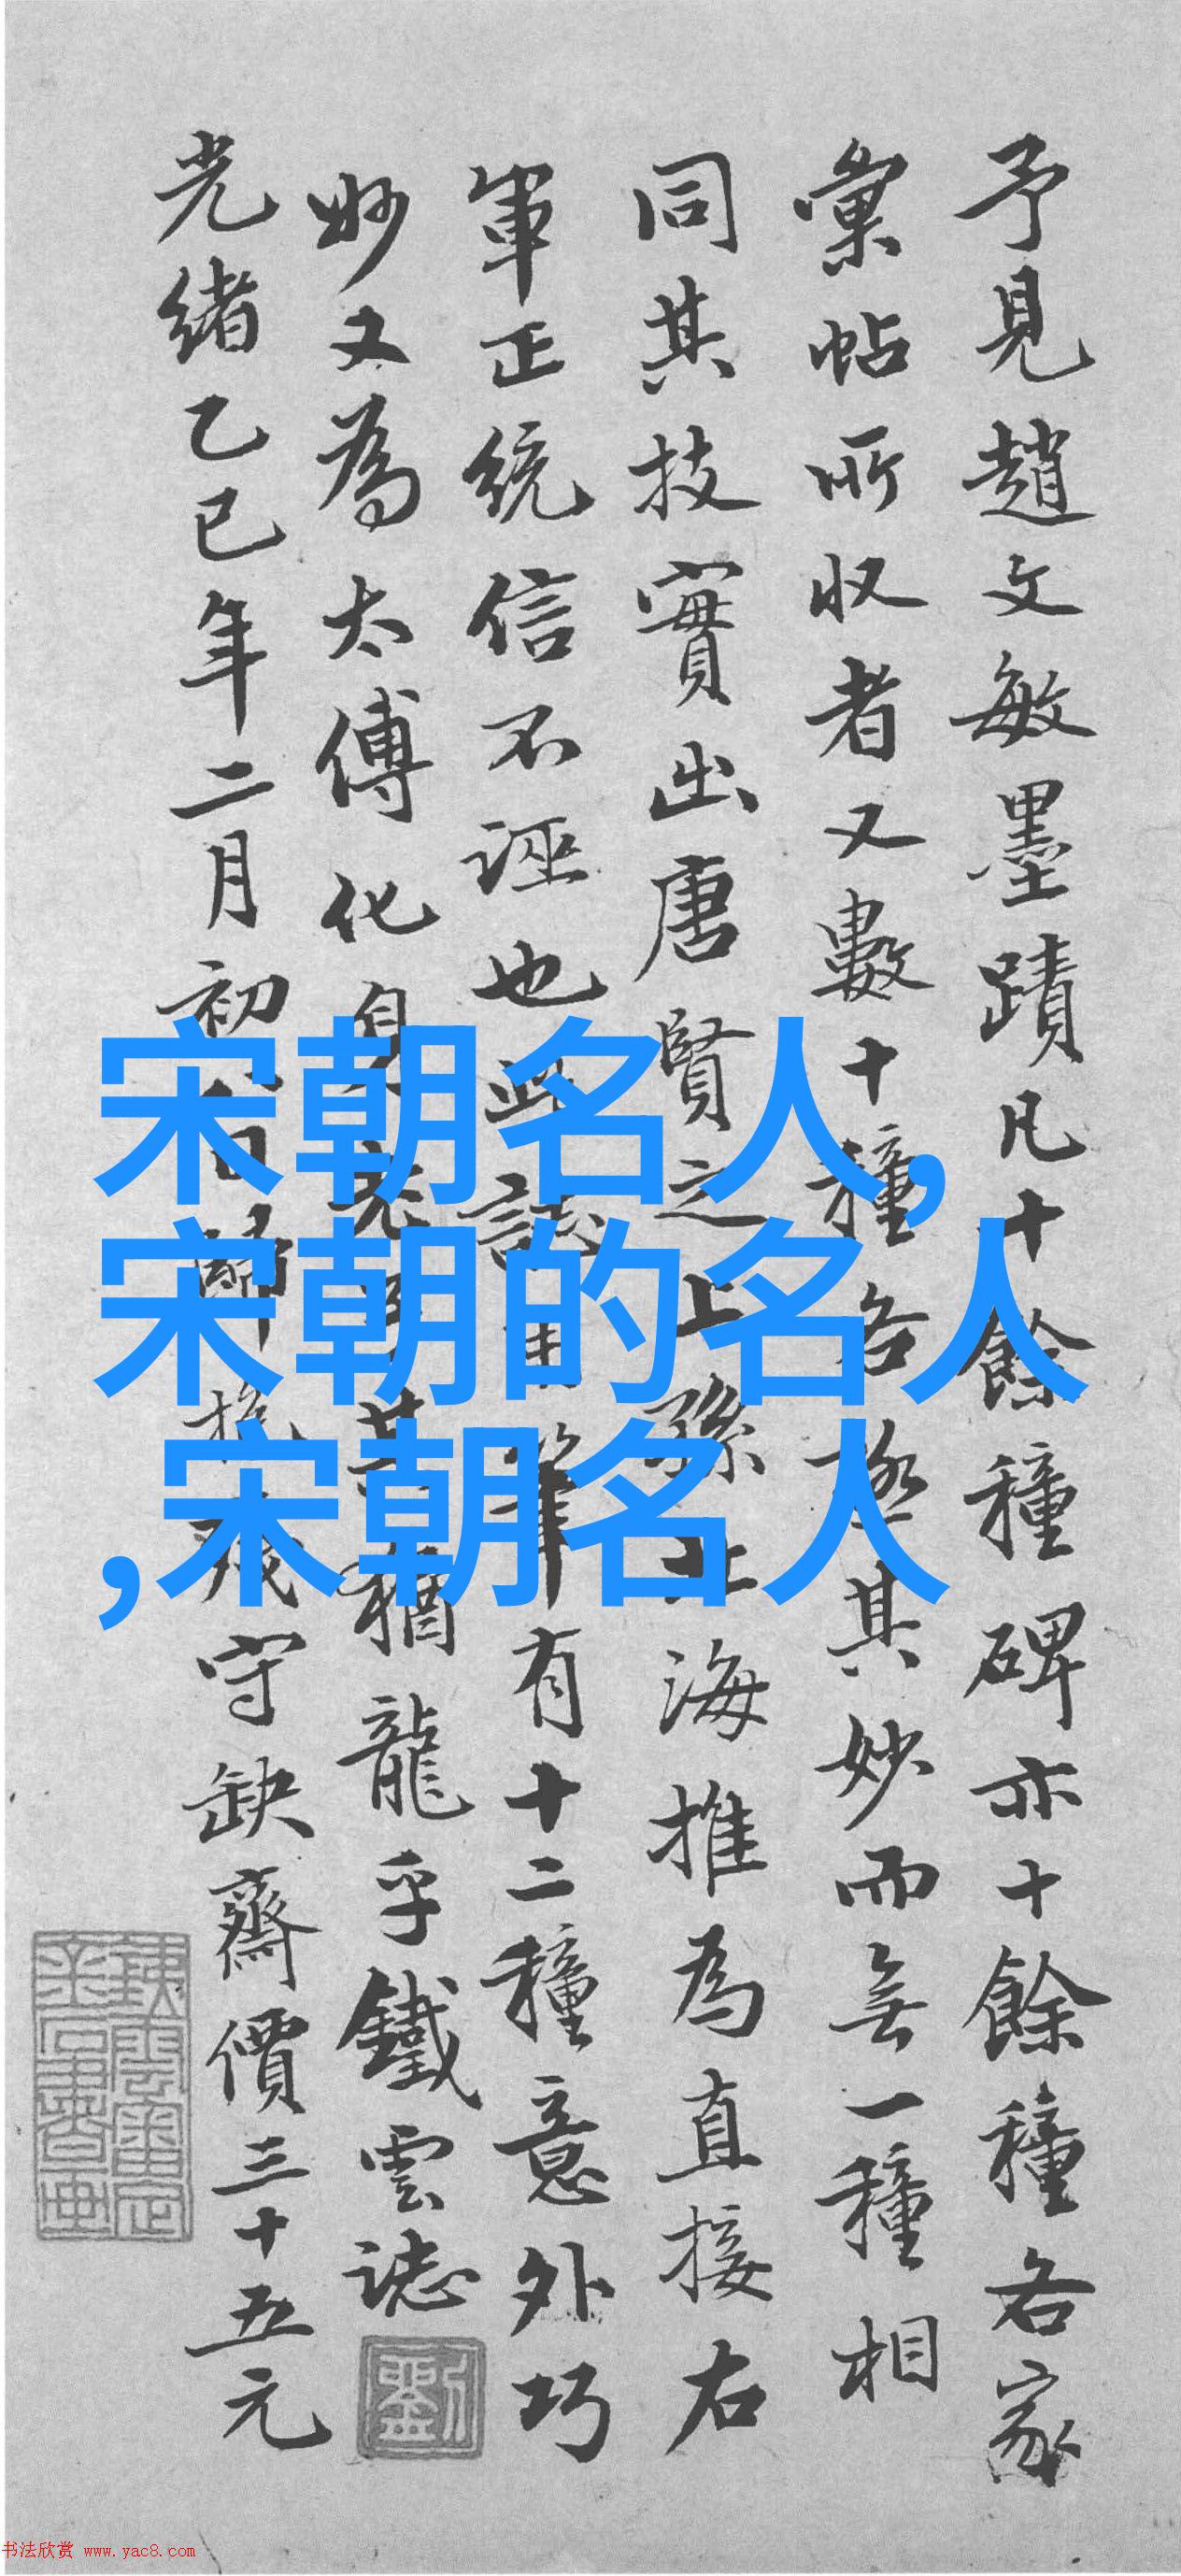 予見趙文敏墨蹟凡十餘種碑亦十餘種各家
彙帖所收者又數十種各極其妙而無一種相
同其技實出唐賢之上孫北海推為直接右
軍正統信不誣也此誌用筆有十二種意外巧
妙又為太傅化身老子其猶龍乎鐵雲誌
光緒乙巳年二月初 日 抱殘守缺齋價三十五元
劉
宋朝名人,
宋朝的名人
,宋朝名人
书法欣赏 www.yac8.com